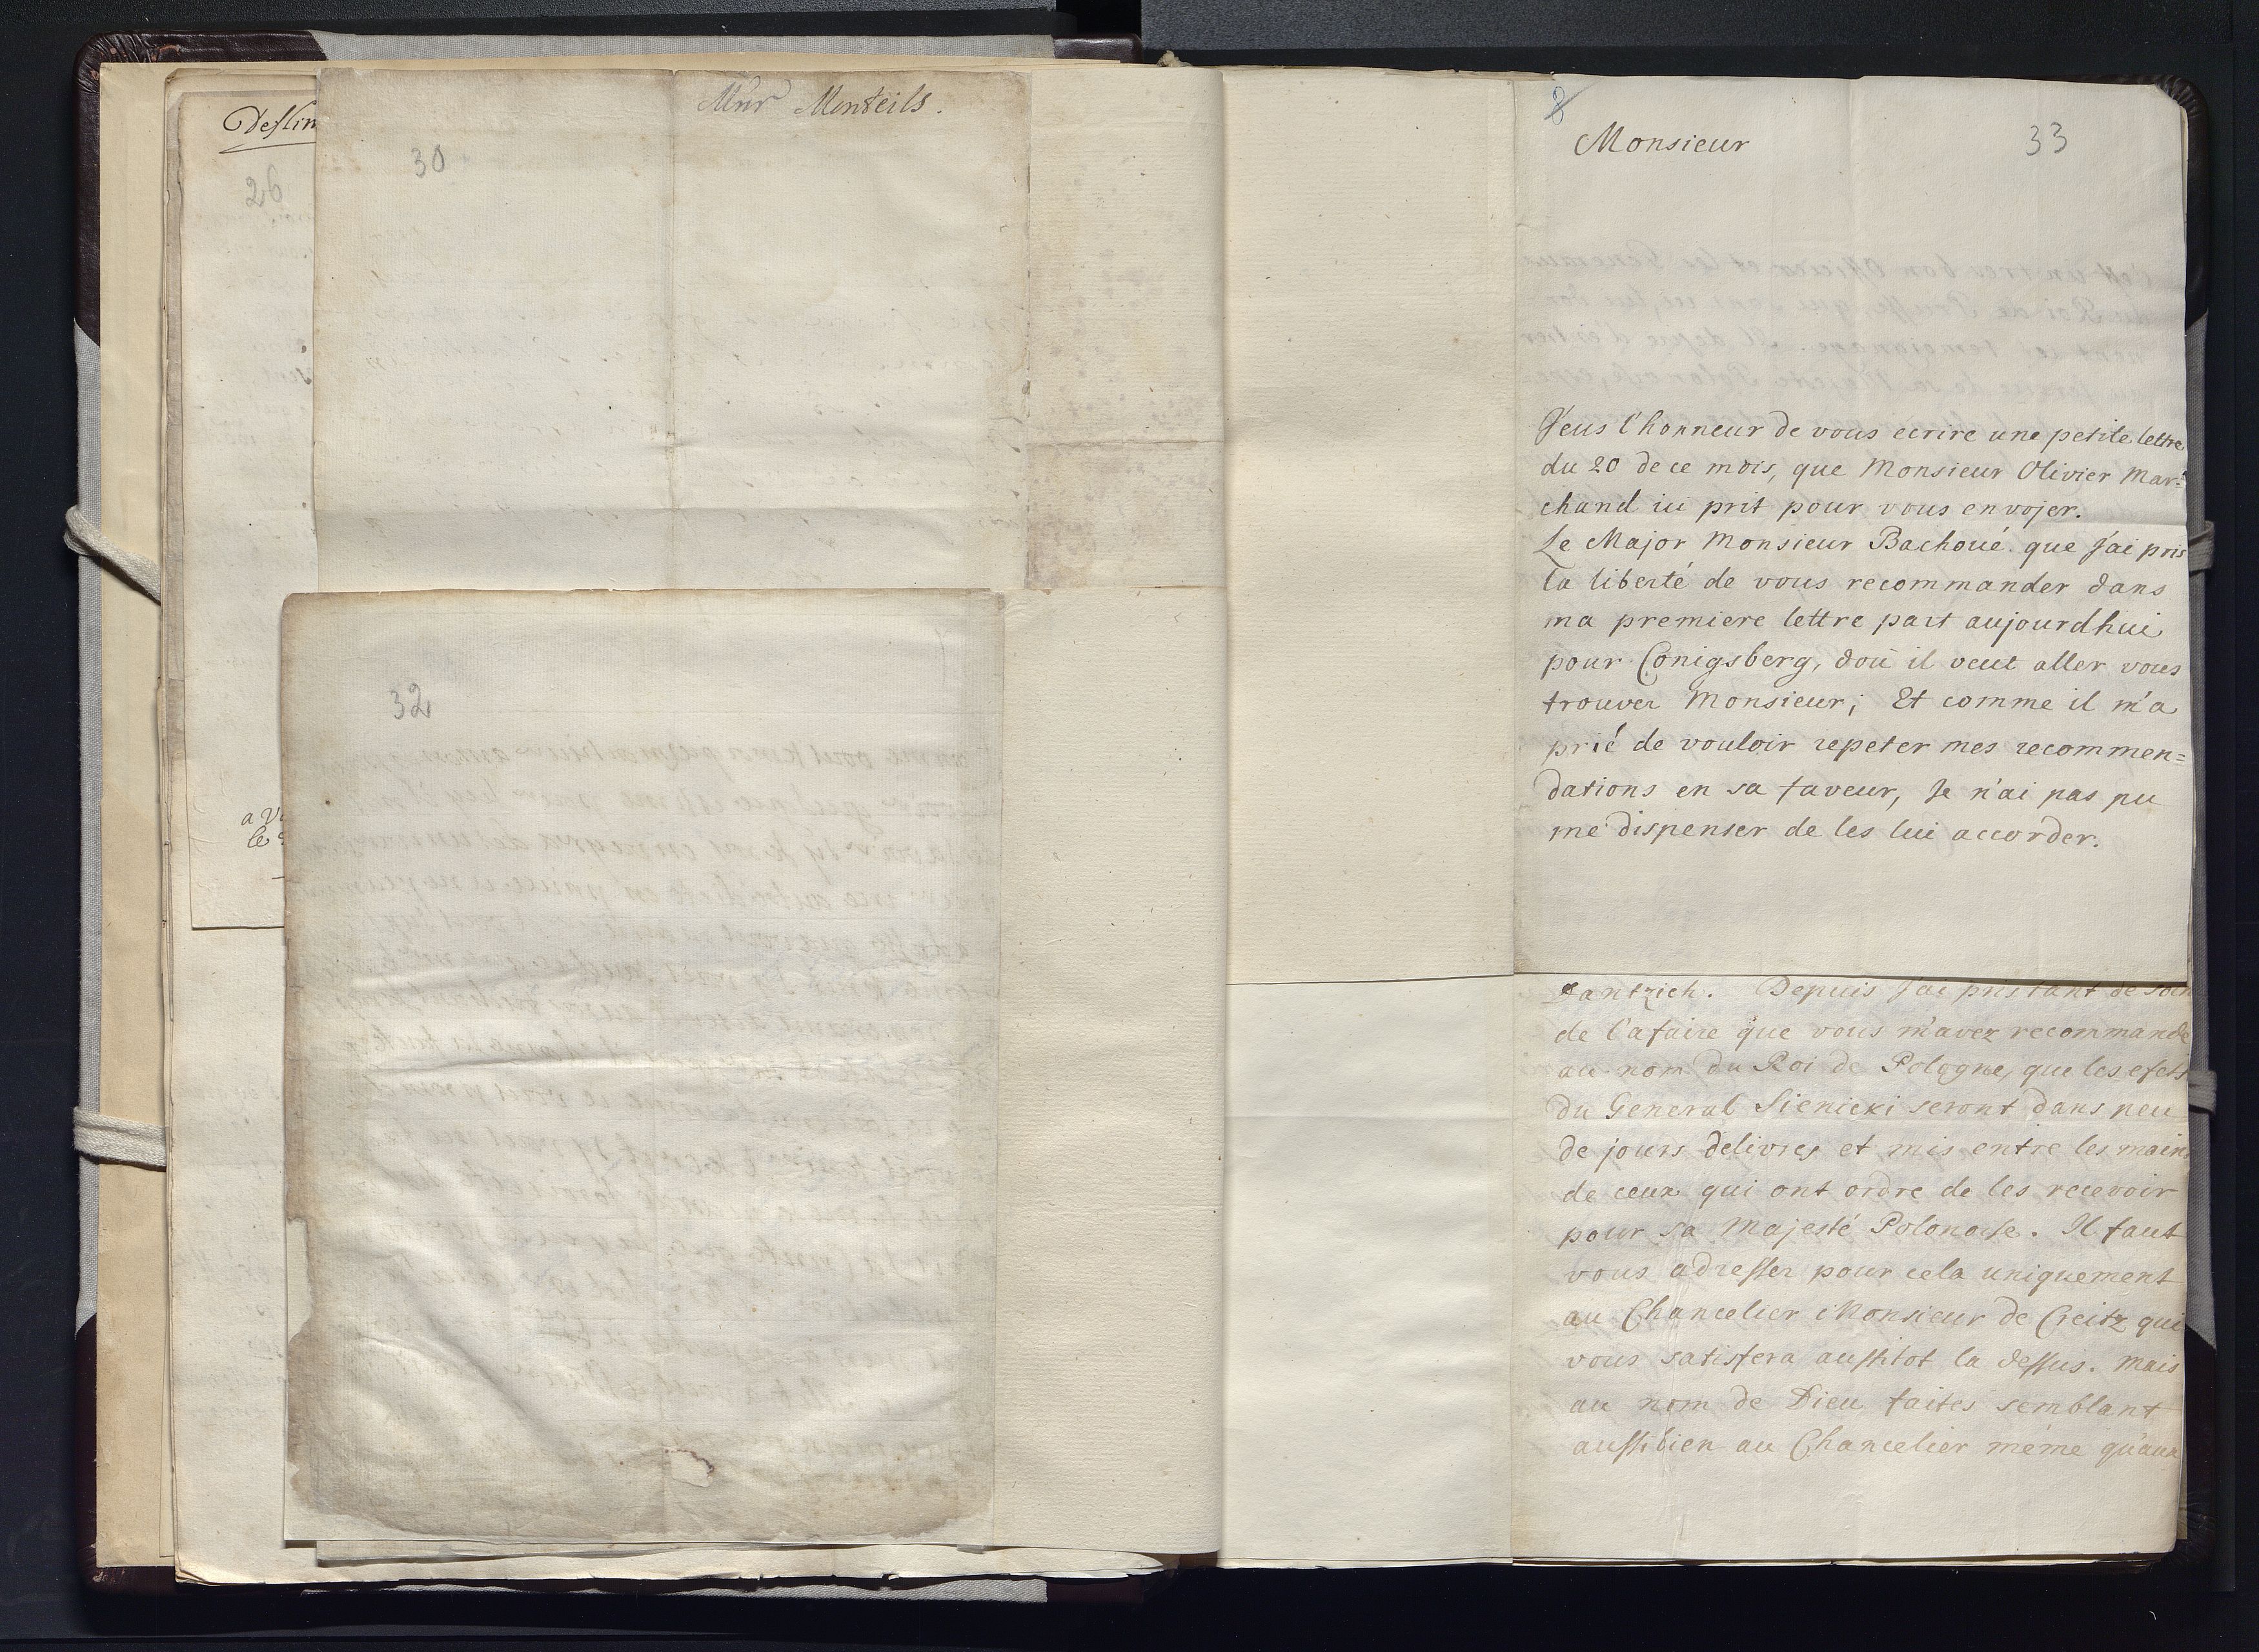 Destin
26
a V
le
Mur Monteils.
30
32
8
Monsieur
33
J'eus l'honneur de vous ecrire une petite lettre
du 20 de ce mois, que Monsieur Olivier Mar=
chand ici prit pour vous envojer.
Le Major Monsieur Bachoué que j'ai pris
la liberté de vous recommander dans
ma premiere lettre part aujourdhui
pour Conigsberg, doù il veut aller vous
trouver Monsieur; Et comme il m'a
prié de vouloir repeter mes recommen=
dations en sa faveur, Je n'ai pas pu
me dispenser de les lui accorder.
Dantzich. Depuis j'ai pris tant de soin
de l'afaire que vous m'avez recommandé
au nom du Roi de Pologne, que les efets
du General Sienicki seront dans peu
de jours delivres et mis entre les mains
de ceux qui ont ordre de les recevoir
pour sa Majesté Polonoise. Il faut
vous adresser pour cela uniquement
au Chancelier Monsieur de Creitz qui
vous satisfera aussitot la dessus. Mais
au nom de Dieu faites semblant
aussi bien au Chancelier méme qu'aux